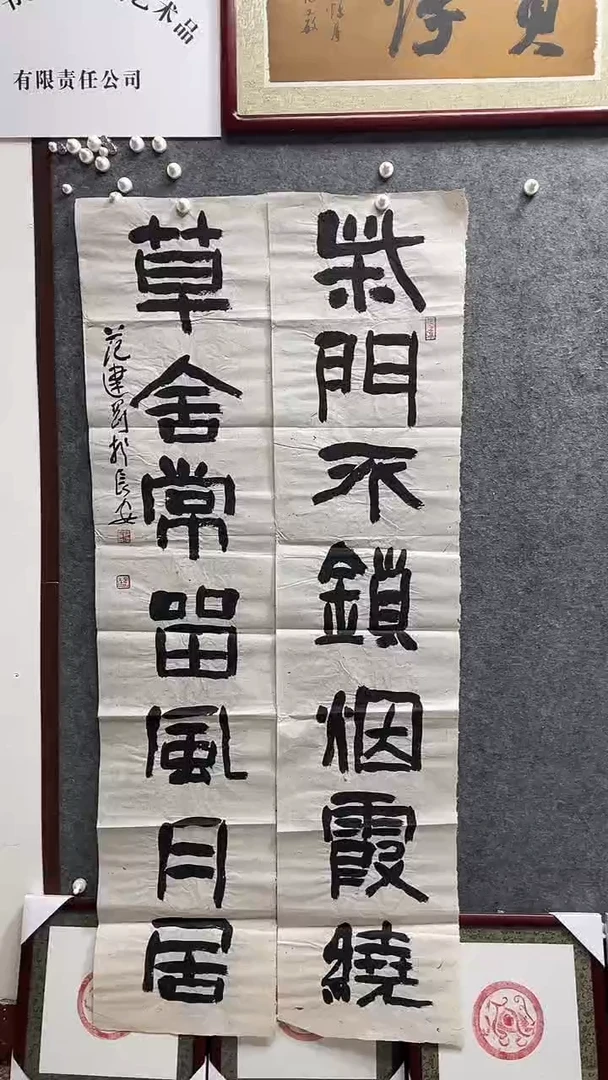 艺术品
有限责任公司
柴門不鎖烟霞繞
草舍常留風月居
范建西於長安